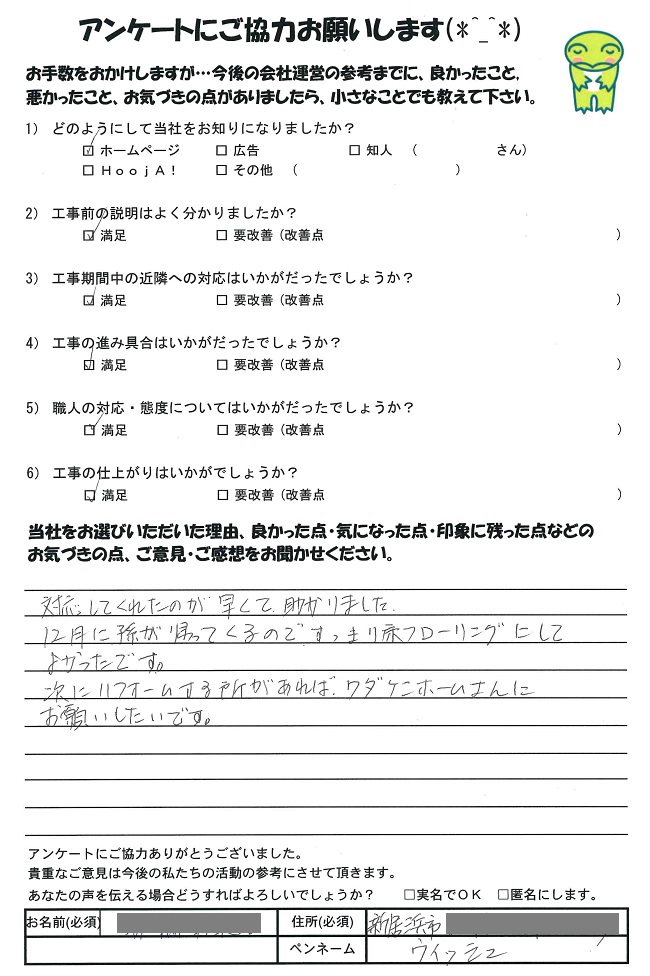 アンケートにご協力お願いします(*^_^*)
お手数をおかけしますが…今後の会社運営の参考までに、良かったこと、
悪かったこと、お気づきの点がありましたら、小さなことでも教えて下さい。
1) どのようにして当社をお知りになりましたか？
☑ ホームページ □ 広告 □ 知人 ( さん)
□ HoojA！ □ その他 ( )
2) 工事前の説明はよく分かりましたか？
☑ 満足 □ 要改善 (改善点 )
3) 工事期間中の近隣への対応はいかがだったでしょうか？
☑ 満足 □ 要改善 (改善点 )
4) 工事の進み具合はいかがだったでしょうか？
☑ 満足 □ 要改善 (改善点 )
5) 職人の対応・態度についてはいかがだったでしょうか？
☑ 満足 □ 要改善 (改善点 )
6) 工事の仕上がりはいかがでしょうか？
☑ 満足 □ 要改善 (改善点 )
当社をお選びいただいた理由、良かった点・気になった点・印象に残った点などの
お気づきの点、ご意見・ご感想をお聞かせください。
対応してくれたのが早くて、助かりました。
12月に孫が帰ってくるのですっきり床フローリングにして
よかったです。
次にリフォームする所があれば、ワダケンホームさんに
お願いしたいです。
アンケートにご協力ありがとうございました。
貴重なご意見は今後の私たちの活動の参考にさせて頂きます。
あなたの声を伝える場合どうすればよろしいでしょうか？ □実名でOK □匿名にします。
お名前(必須) 住所(必須) 新居浜市
ペンネーム ウイッシュ